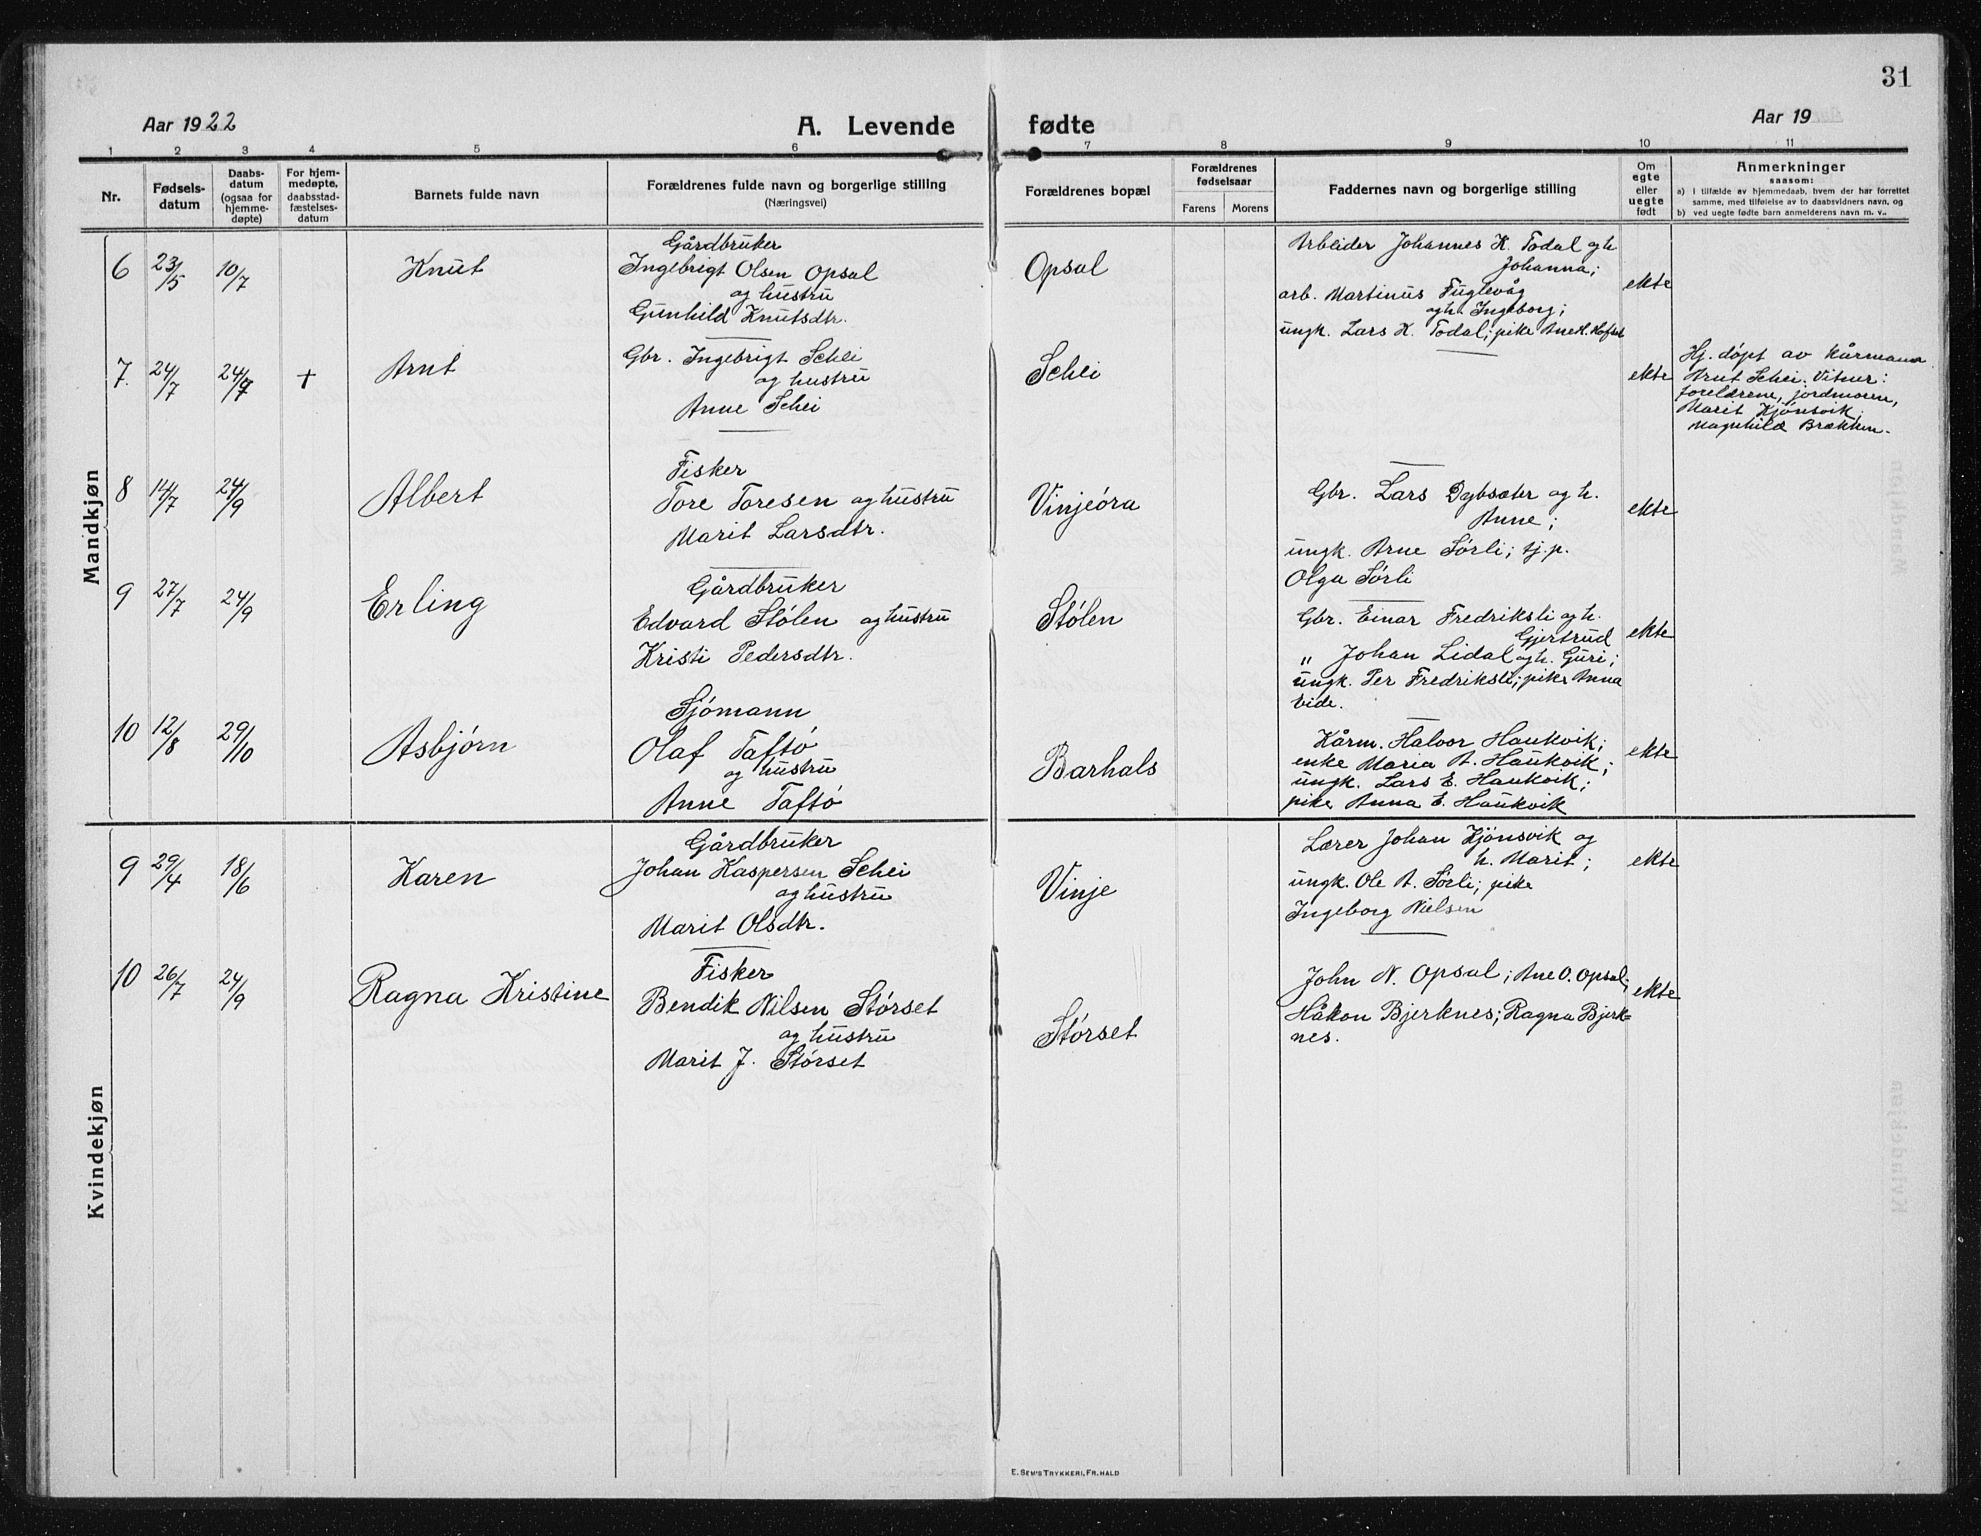 31
Aar 1922
A. Levende fødte
Aar 19
1 2 3 4 5 6 7 8 9 10 11
Nr.
Fødsels-
datum
Daabs-
datum
(ogsaa for
hjemme-
døpte)
For hjem-
medøpte,
daabsstad-
fæstelses-
datum
Barnets fulde navn
Forældrenes fulde navn og borgerlige stilling
(Næringsvei)
Forældrenes bopæl
Forældrenes
fødselsaar
Farens Morens
Faddernes navn og borgerlige stilling
Om
egte
eller
uegte
født
Anmerkninger
saasom:
a) i tilfælde av hjemmedaab, hvem der har forrettet
samme, med tilføielse av to daabsvidners navn, og
b) ved uegte fødte barn anmelderens navn m. v..
Mandkjøn
6 23/5 10/7 Knut
Gårdbruker
Ingebrigt Olsen Opsal
og hustru
Gunhild Knutsdtr.
Opsal
Arbeider Johannes K. Todal og h.
Johanna;
arb. Martinus Fuglevåg
og h. Ingeborg;
ungk. Lars K. Todal; pike Ane H. Hafset
ekte
7. 24/7 24/7 + Arnt
Gbr. Ingebrigt Schei
og hustru
Anne Schei
Schei
ekte
Hj. døpt av kårmann
Arnt Schei. Vitner:
foreldrene, jordmoren,
Marit Kjønsvik,
Magnhild Brækken.
8 14/7 24/9 Albert
Fisker
Tore Toresen og hustru
Marit Larsdtr.
Vinjeöra
Gbr. Lars Dybsæter og h.
Anne;
ungk. Arne Sørli; tj.p.
Olga Sørli
ekte
9 27/7 24/9 Erling
Gårdbruker
Edvard Stölen og hustru
Kristi Pedersdtr.
Stölen
Gbr. Einar Fredriksli og h.
Gjertrud
" Johan Lidal og h. Guri;
ungk. Per Fredriksli; pike Anna
Eide.
ekte
10 12/8 29/10 Asbjørn
Sjómann
Olaf Taftó
og hustru
Anne Taftó
Barhals
Kårm. Halvor Haukvik;
enke Maria A. Haukvik;
ungk. Lars E. Haukvik;
pike Anna E. Haukvik
ekte
Kvindekjøn
9 29/4 18/6 Karen
Gårdbruker
Johan Kaspersen Schei
og hustru
Marit Olsdtr.
Vinje
Lærer Johan Kjönsvik og
h. Marit;
ungk. Ole A. Sørli; pike
Ingeborg Nielsen
ekte
10 26/7 24/9 Ragna Kristine
Fisker
Bendik Nilsen Störset
og hustru
Marit J. Störset
Störset
John N. Opsal; Ane O. Opsal;
Håkon Bjerknes; Ragna Bjerk=
nes.
ekte
E. Sem's Trykkeri, Fr.hald